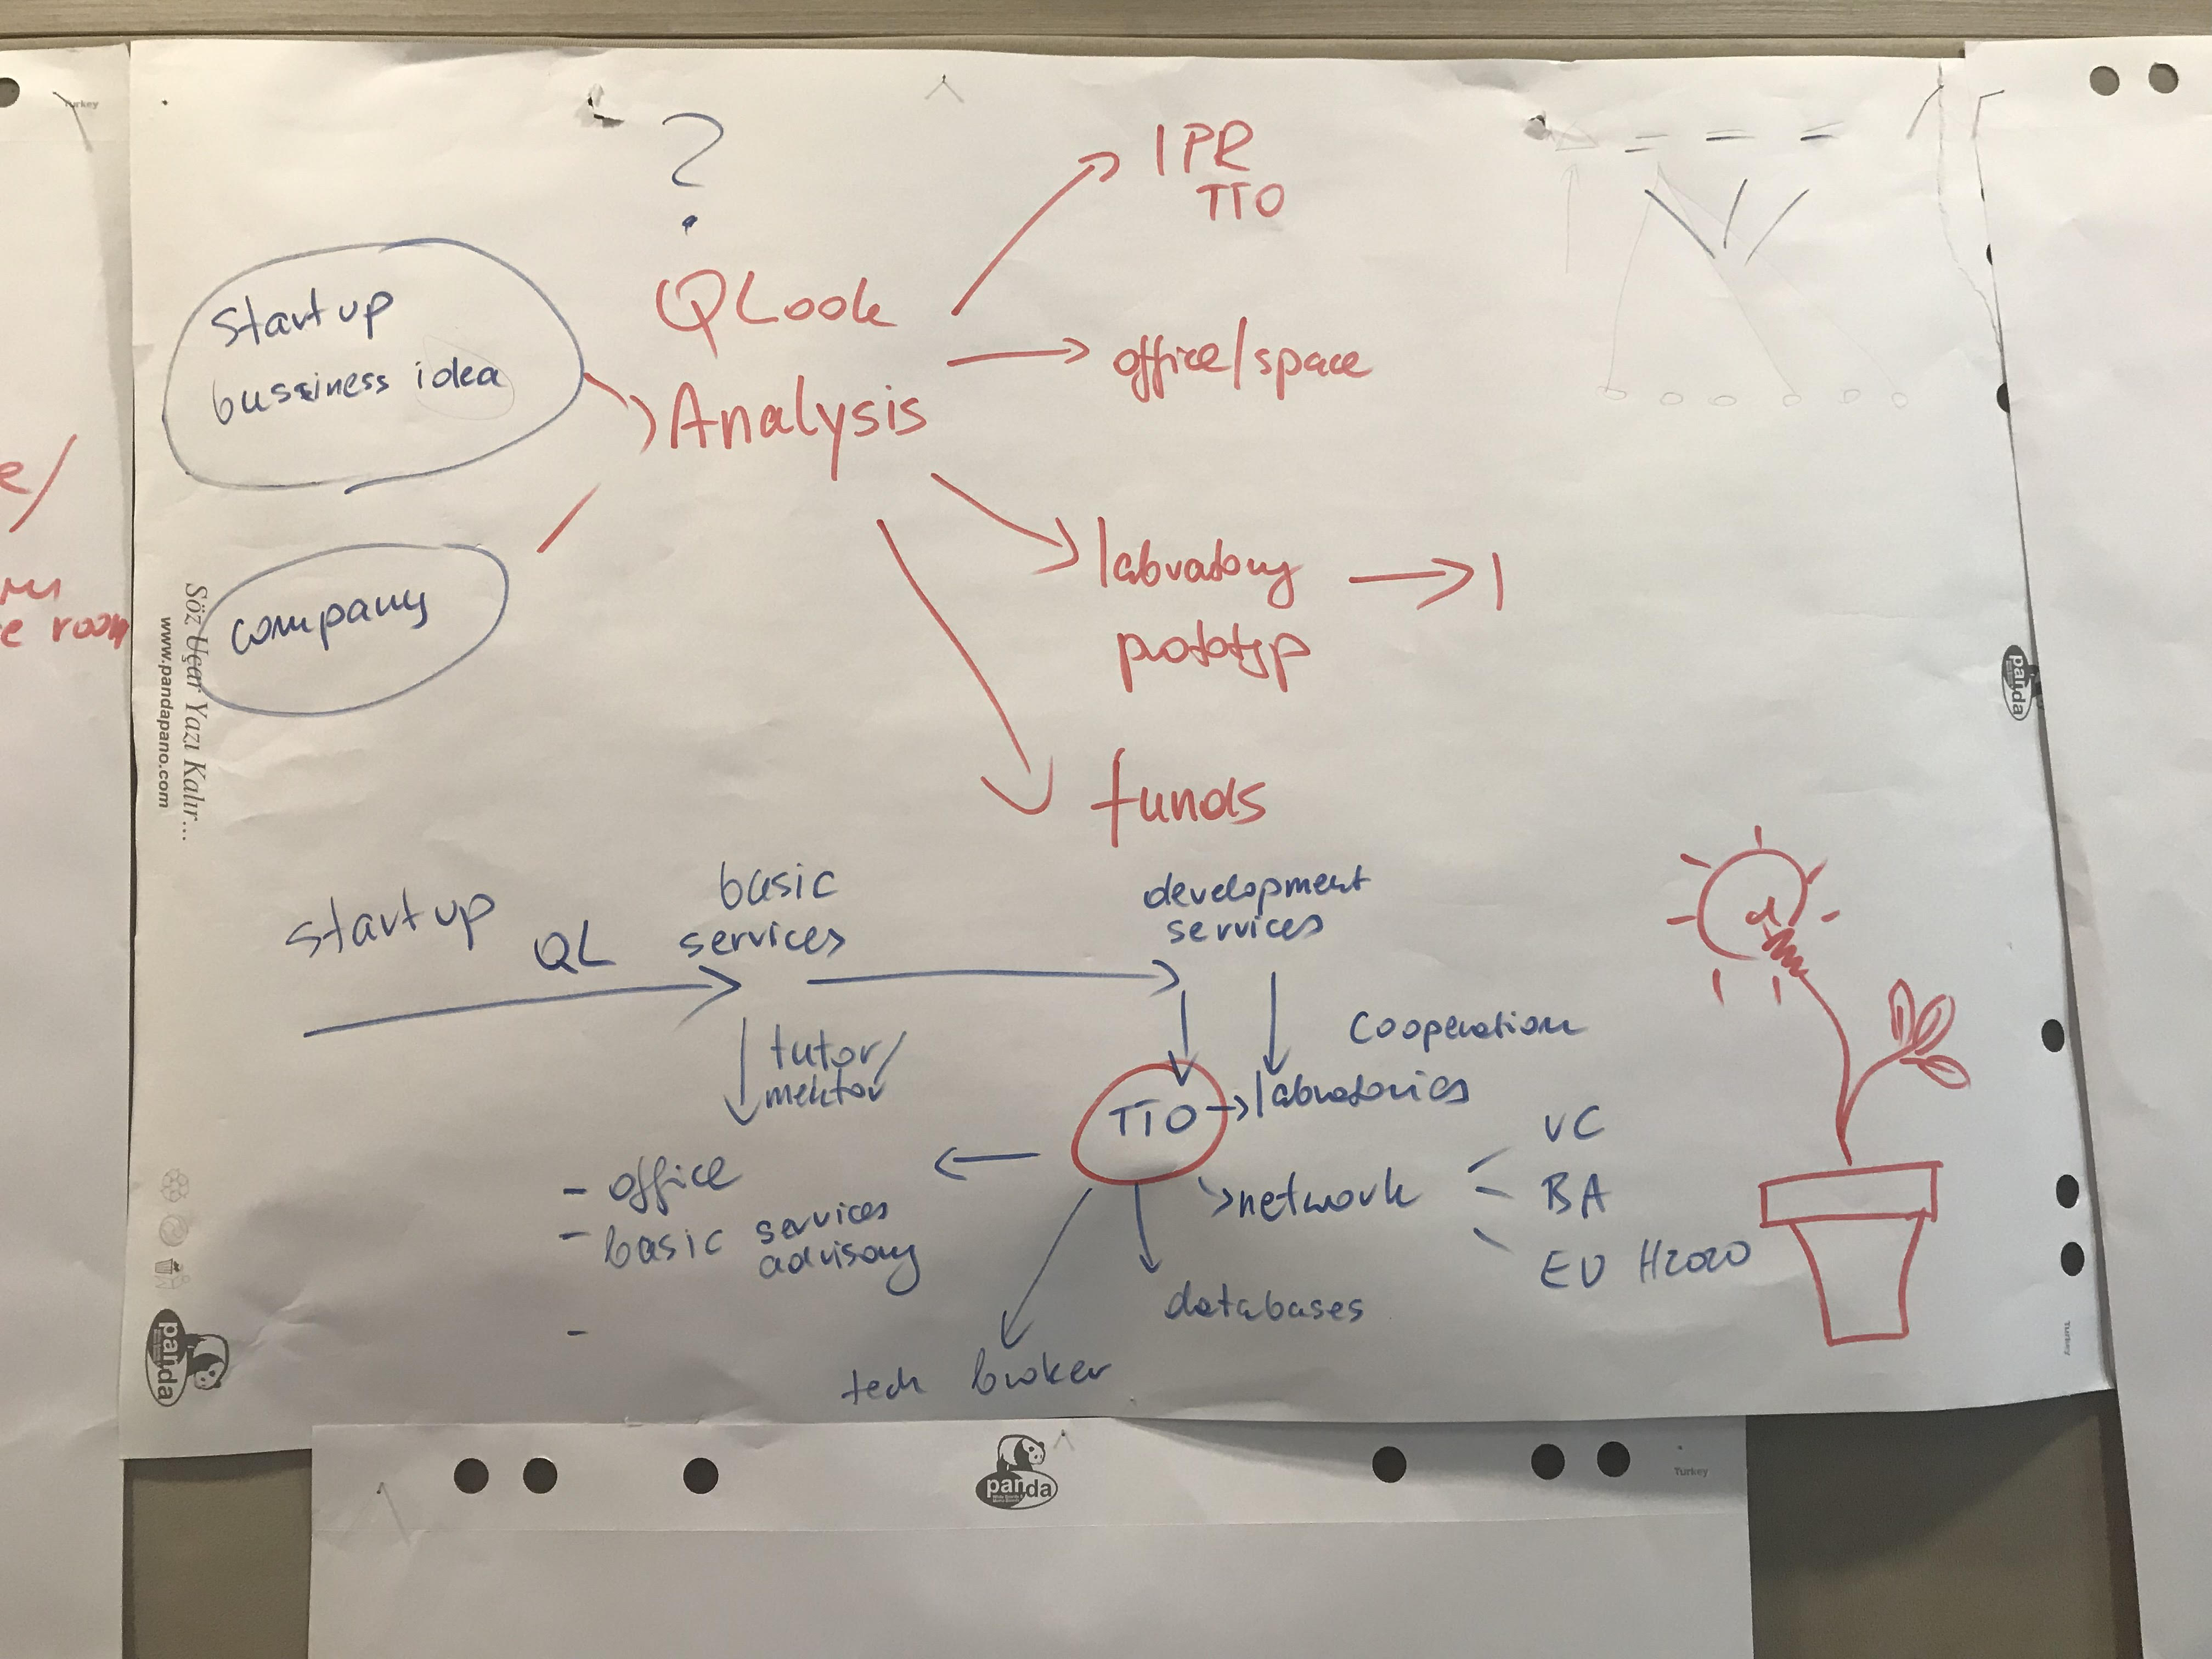 ?
IPR
TTO
QLook
Analysis
Startup
bussiness idea
company
office/space
labvatory
prototyp
funds
startup
QL
basic
services
development
services
tutor/
mentor
Cooperation
TTO
labratories
- office
- basic services
advisory
-
network
VC
BA
EU H2020
databases
tech broker
e/
e room
Söz Uçar Yazı Kalır...
www.pandapano.com
panda
panda
panda
Turkey
Turkey
Turkey